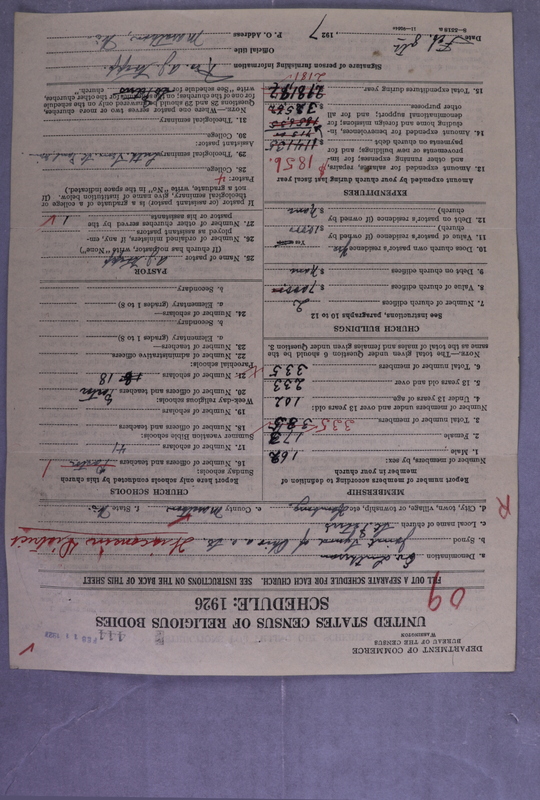 DEPARTMENT OF COMMERCE
BUREAU OF THE CENSUS
WASHINGTON
411
FEB 11 1927
UNITED STATES CENSUS OF RELIGIOUS BODIES
SCHEDULE: 1926
09
FILL OUT A SEPARATE SCHEDULE FOR EACH CHURCH. SEE INSTRUCTIONS ON THE BACK OF THIS SHEET
a. Denomination Ev. Lutheran
b. Synod Joint Synod of Ohio a. o. St. Wisconsin District
c. Local name of church St. Peters
d. City, town, village, or township, etc. e. County f. State Wis.
MEMBERSHIP
Report number of members according to definition of member in your church
Number of members, by sex:
1. Male 162
2. Female 173
3. Total number of members 335
Number of members under and over 13 years old:
4. Under 13 years of age 102
5. 13 years old and over 233
6. Total number of members 335
NOTE.—The total given under question 6 should be the same as the total of males and females given under Question 3.
CHURCH BUILDINGS
See instructions, paragraphs 10 to 12
7. Number of church edifices 2
8. Value of church edifices $
9. Debt on church edifices $ None
10. Does church own pastor's residence? Yes
11. Value of pastor's residence (if owned by church) $
12. Debt on pastor's residence (if owned by church) $ None
EXPENDITURES
Amount expended by your church during last fiscal year
13. Amount expended for salaries, repairs, and other running expenses; for improvements or new buildings; and for payments on church debt
1856.
14. Amount expended for benevolences, including home and foreign missions; for denominational support; and for all other purposes
15. Total expenditures during year
2181
CHURCH SCHOOLS
Report here only schools conducted by this church
Sunday schools:
16. Number of officers and teachers Pastor 1
17. Number of scholars 41
Summer vacation Bible schools:
18. Number of officers and teachers
19. Number of scholars
Week-day religious schools:
20. Number of officers and teachers Pastor
21. Number of scholars 18
Parochial schools:
22. Number of administrative officers
23. Number of teachers—
a. Elementary (grades 1 to 8)
b. Secondary
24. Number of scholars—
a. Elementary (grades 1 to 8)
b. Secondary
PASTOR
25. Name of pastor
(If church has no pastor, write "None")
26. Number of ordained ministers, if any, employed as assistant pastors
27. Number of other churches served by the pastor or his assistants 1
If pastor or assistant pastor is a graduate of a college or theological seminary, give name of institution below. (If not a graduate, write "No" in the space indicated.)
Pastor:
28. College
29. Theological seminary
Assistant pastor:
30. College
31. Theological seminary
NOTE.—Where one pastor serves two or more churches, Questions 28 and 29 should be answered only on the schedule for one of the churches; on schedules for the other churches, write "See schedule for church."
Signature of person furnishing information
Official title
P. O. Address
Date Feb. 8th 1927